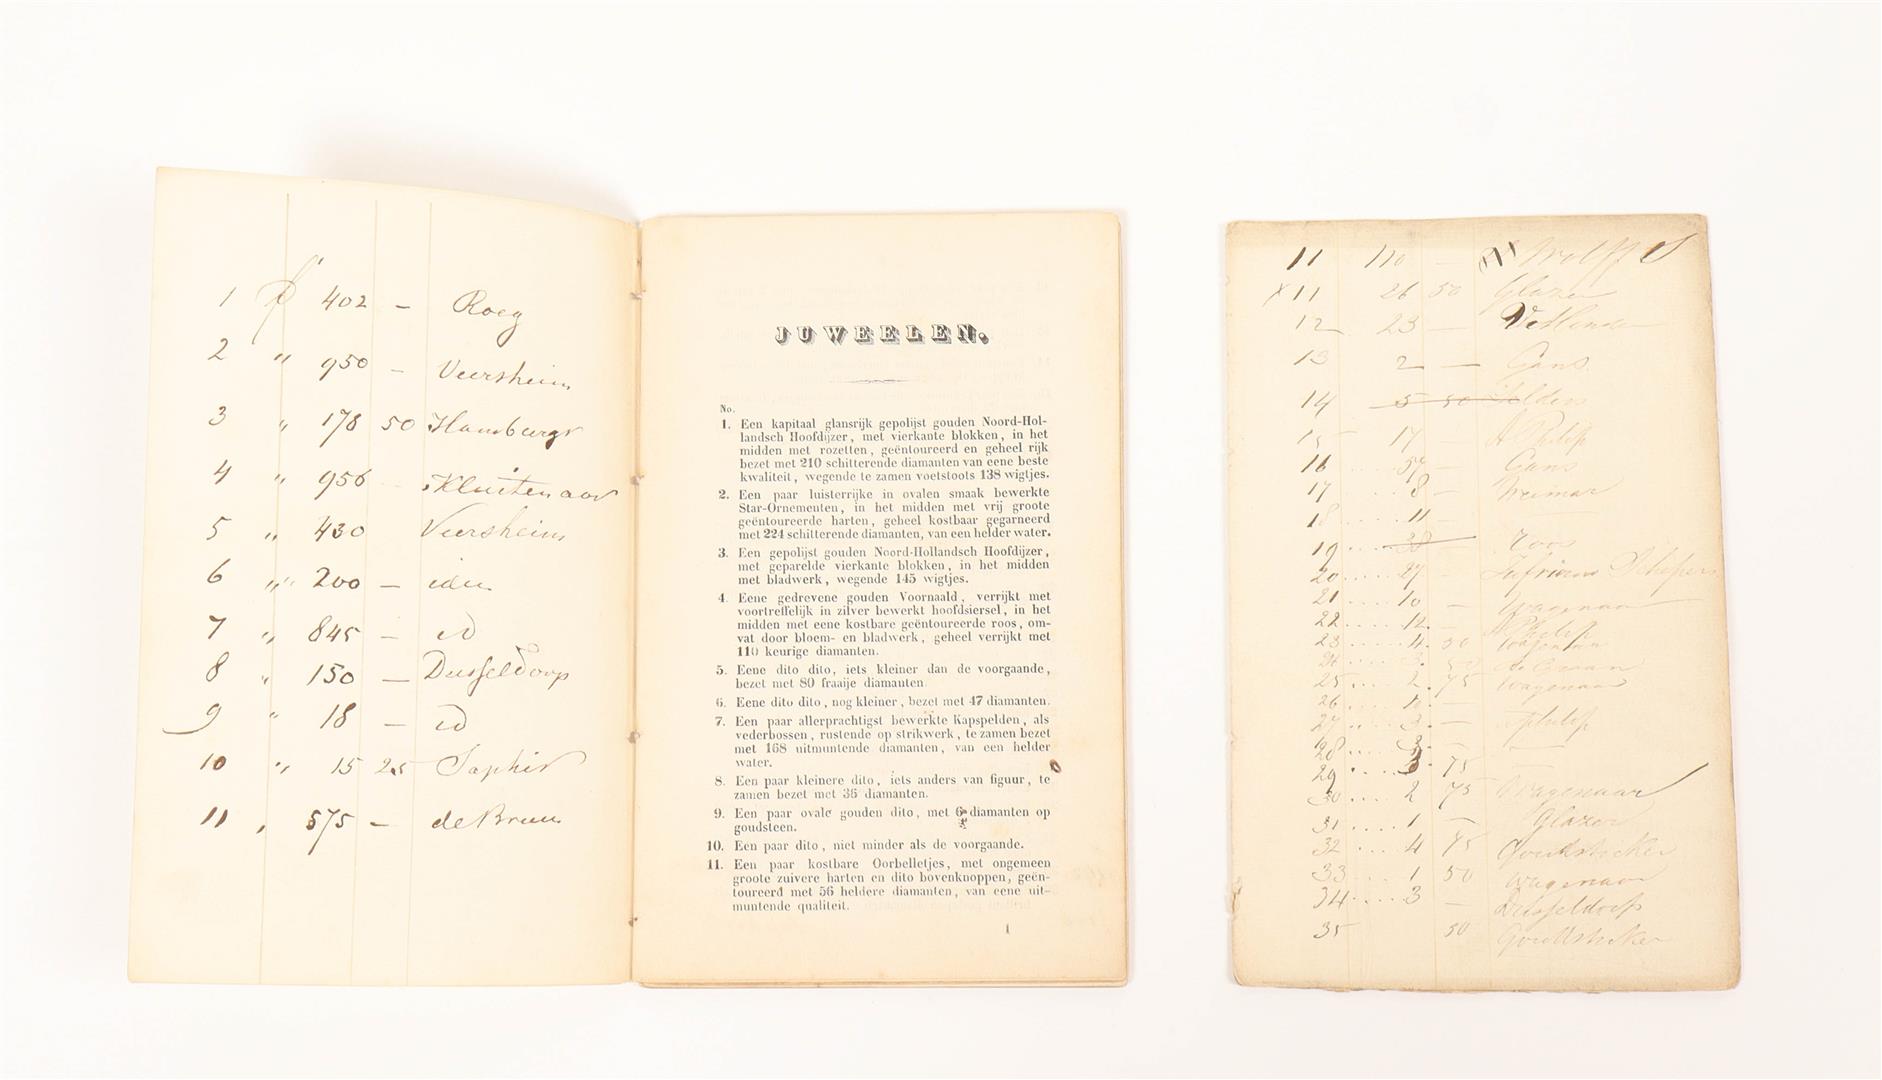 1 f 402 — Roeg
2 " 950 — Veersheim
3 " 178 50 Hamburgr
4 " 956 - Kluitenaar
5 " 430 Veersheim
6 " 200 — idem
7 " 845 — id
8 " 150 — Dusseldorp
9 " 18 — id
10 " 15 25 Saphir
11 , 575 — de Bruin
JUWEELEN.
No.
1. Een kapitaal glansrijk gepolijst gouden Noord-Hol-
landsch Hoofdijzer, met vierkante blokken, in het
midden met rozetten, geëntoureerd en geheel rijk
bezet met 210 schitterende diamanten van eene beste
kwaliteit, wegende te zamen voetstoots 138 wigtjes.
2. Een paar luisterrijke in ovalen smaak bewerkte
Star-Ornementen, in het midden met vrij groote
geëntoureerde harten, geheel kostbaar gegarneerd
met 224 schitterende diamanten, van een helder water.
3. Een gepolijst gouden Noord-Hollandsch Hoofdijzer,
met geparelde vierkante blokken, in het midden
met bladwerk, wegende 145 wigtjes.
4. Eene gedrevene gouden Voornaald, verrijkt met
voortreffelijk in zilver bewerkt hoofdsiersel, in het
midden met eene kostbare geëntoureerde roos, om-
vat door bloem- en bladwerk, geheel verrijkt met
110 keurige diamanten.
5. Eene dito dito, iets kleiner dan de voorgaande,
bezet met 80 fraaije diamanten.
6. Eene dito dito, nog kleiner, bezet met 47 diamanten.
7. Een paar allerprachtigst bewerkte Kapspelden, als
vederbossen, rustende op strikwerk, te zamen bezet
met 168 uitmuntende diamanten, van een helder
water.
8. Een paar kleinere dito, iets anders van figuur, te
zamen bezet met 36 diamanten.
9. Een paar ovale gouden dito, met 6 diamanten op
goudsteen.
10. Een paar dito, niet minder als de voorgaande.
11. Een paar kostbare Oorbelletjes, met ongemeen
groote zuivere harten en dito bovenknoppen, geën-
toureerd met 56 heldere diamanten, van eene uit-
muntende qualiteit.
1
11 110 — Wolff
x 11 26 50 Glazer
12 23 —
13 2 — Gans
14 5 50
15 17 Philip
16 .... 57 — Gans
17 .... 8 — Weimar
18 .... 11 —
19 .... 38 — Roos
20 .... 27 — Schepers
21 .... 10 — Wagenaar
22 .... 12 — Philip
23 .... 4 50 Wagenaar
24 .... 3 50
25 .... 2 75 Wagenaar
26 ....
27 .... 3 — Philip
28 .... 3 — —
29 .... 3 75 —
30 .... 2 75 Wagenaar
31 .... 1 — Glazer
32 .... 4 75 Goudsticker
33 .... 1 50 Wagenaar
34 .... 3 — Dusseldorp
35 50 Goudsticker